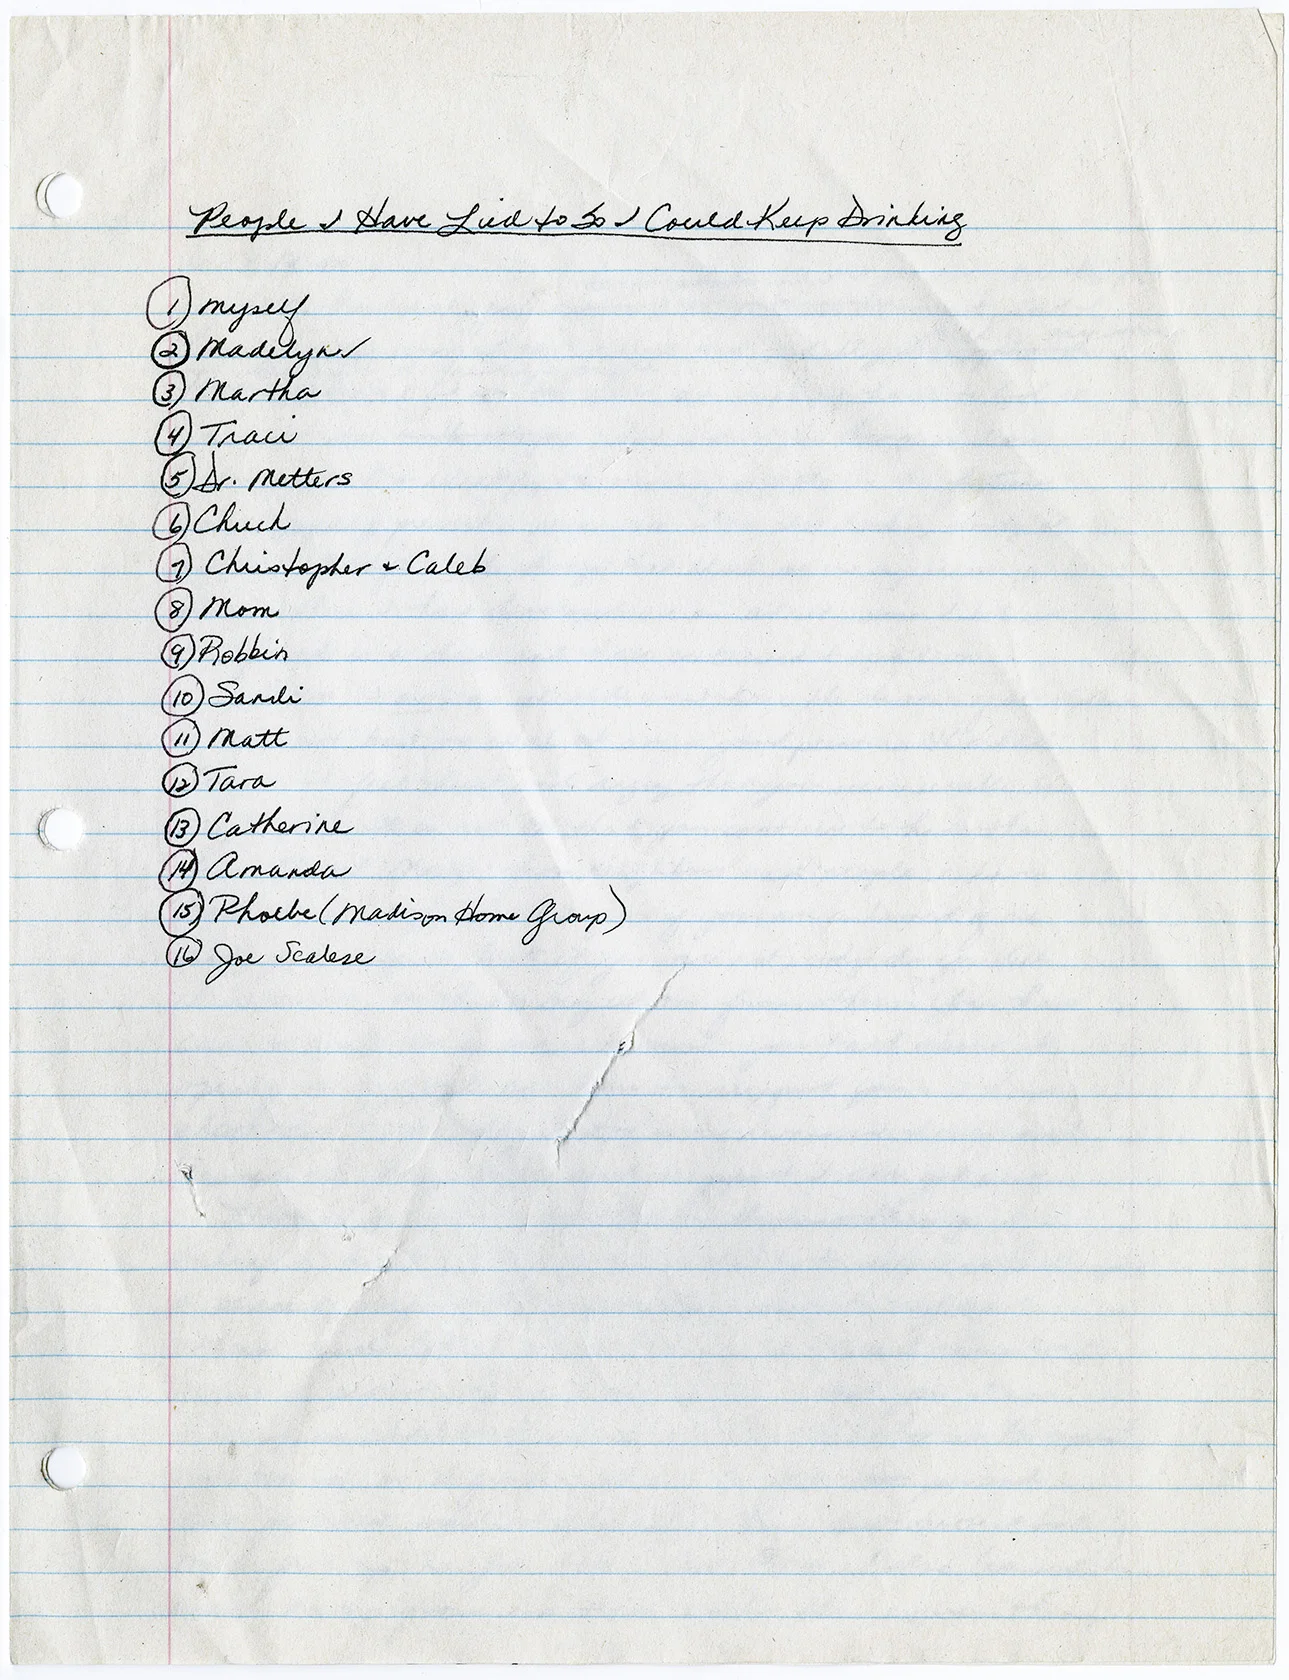 People I Have Lied to So I Could Keep Drinking
1 Myself
2 Madelyn ✓
3 Martha
4 Traci
5 Dr. Metters
6 Chuck
7 Christopher + Caleb
8 Mom
9 Robbin
10 Sandi
11 Matt
12 Tara
13 Catherine
14 Amanda
15 Phoebe (Madison Home Group)
16 Joe Scalese